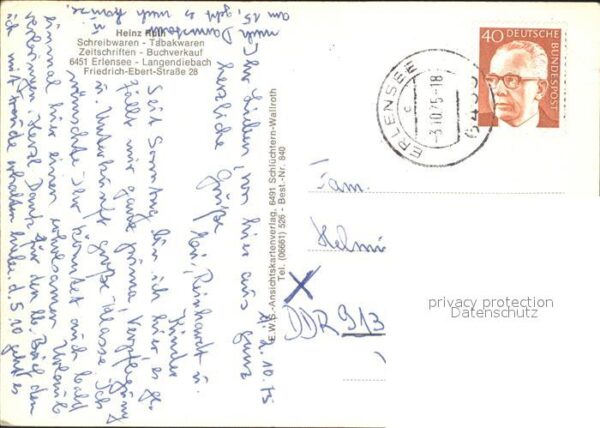 Heinz Ruth
Schreibwaren - Tabakwaren
Zeitschriften - Buchverkauf
6451 Erlensee - Langendiebach
Friedrich-Ebert-Straße 28
40 DEUTSCHE
BUNDESPOST
ERLENSEE
-3.10.75-18
c
6455
E.W.S.-Ansichtskartenverlag, 6491 Schlüchtern-Wallroth
Tel. (06661) 526 - Best.-Nr. 840
2.10.75
Ihr Lieben, von hier aus ganz
herzliche Grüße
Seit Sonntag bin ich hier, es ge-
fällt mir ganz prima Verpflegung
u. Unterkunft große Klasse. Ich
wünschte Ihr könntet auch bald
einmal hier einen erholsamen Urlaub
verbringen. Herzl. Dank für den Brief den
ich mit Freude erhalten habe. d. 5.10 geht es
nach Darmstadt u.
am 15. geht es nach Hause.
Reinhardt u.
Kinder
Fam.
Helmu
X
DDR 913
privacy protection
Datenschutz